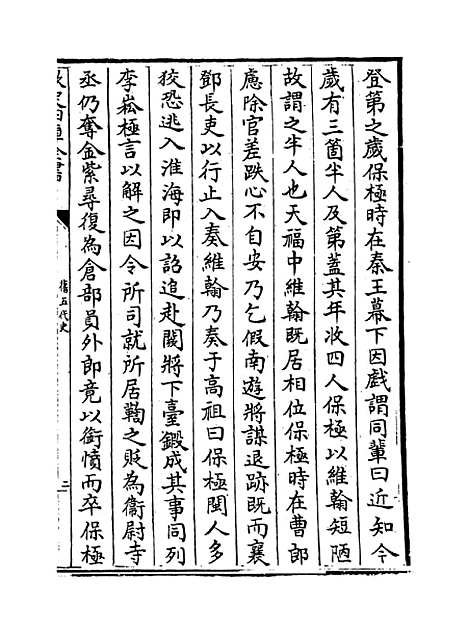 登第之歲保極時在秦王幕下因戲謂同輩曰近知今
歲有三箇半人及第蓋其年收四人保極以維翰短陋
故謂之半人也天福中維翰既居相位保極時在曹郎
慮除官差跌心不自安乃乞假南遊將謀退跡既而襄
鄧長吏以行止入奏維翰乃奏于高祖曰保極閩人多
狡恐逃入淮海即以詔追赴闕將下臺鍛成其事同列
李崧極言以解之因令所司就所居鞫之貶為衞尉寺
丞仍奪金紫尋復為倉部員外郎竟以銜憤而卒保極
欽定四庫全書
舊五代史